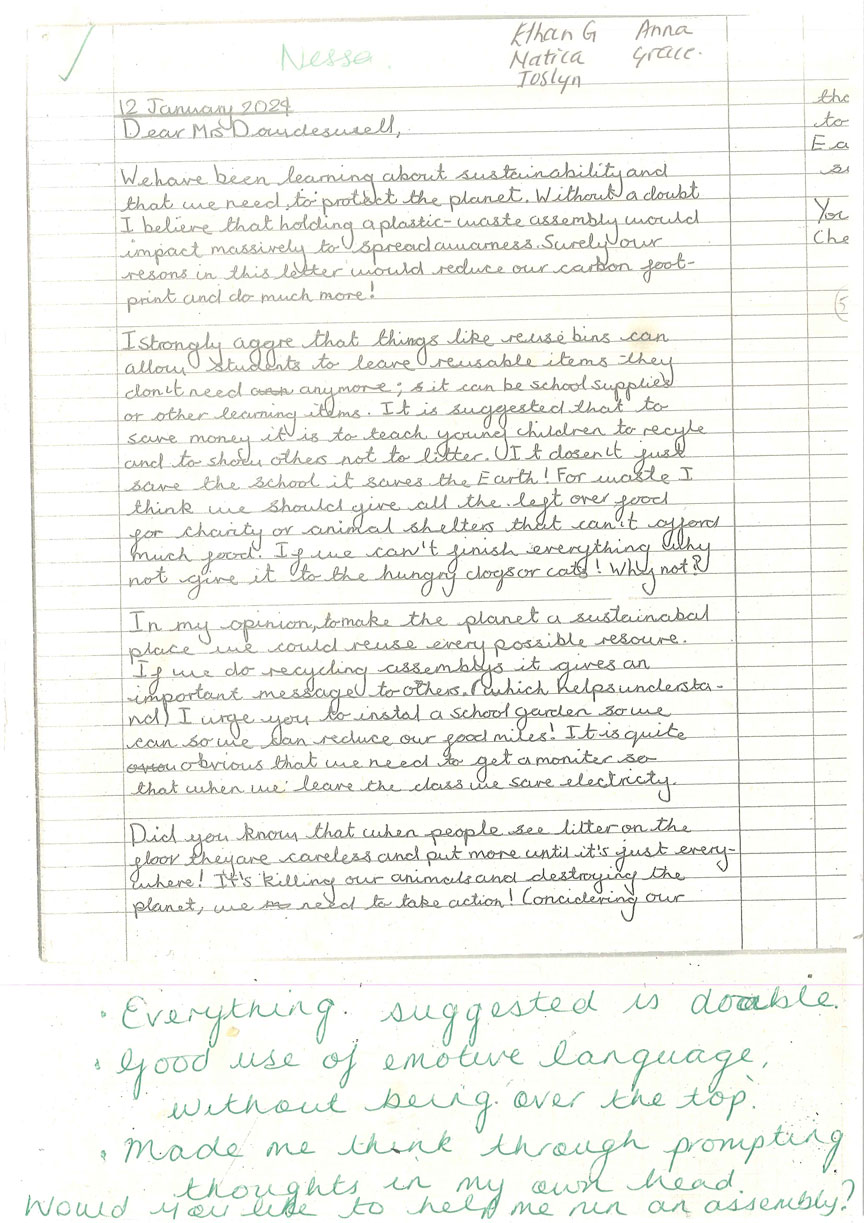 Nessa
Ethan G Anna
Matica Grace.
Joslyn
12 January 2024
Dear Mrs Dowdeswell,
We have been learning about sustainability and
that we need to protect the planet. Without a doubt
I believe that holding a plastic-waste assembly would
impact massively to spread awarness. Surely our
resons in this letter would reduce our carbon foot-
print and do much more!
I strongly aggre that things like reuse bins can
allow students to leave reusable items they
don't need anymore; it can be school supplies
or other learning items. It is suggested that to
save money it is to teach young children to recyle
and to show others not to litter. It dosen't just
save the school it saves the Earth! For waste I
think we should give all the left over food
for charity or animal shelters that can't afford
much food. If we can't finish everything why
not give it to the hungry dogs or cats! Why not?
In my opinion, to make the planet a sustainabal
place we could reuse every possible resoure.
If we do recycling assemblys it gives an
important message to others. (which helps understa-
nd) I urge you to instal a school garden so we
can so we can reduce our food miles! It is quite
obvious that we need to get a moniter so
that when we leave the class we save electricty.
Did you know that when people see litter on the
floor they are careless and put more until it's just every-
where! It's killing our animals and destroying the
planet, we need to take action! Concidering our
tho
to
Ea
You
Che
• Everything suggested is doable.
• Good use of emotive language,
without being over the top.
• Made me think through prompting
thoughts in my own head.
Would you like to help me run an assembly?